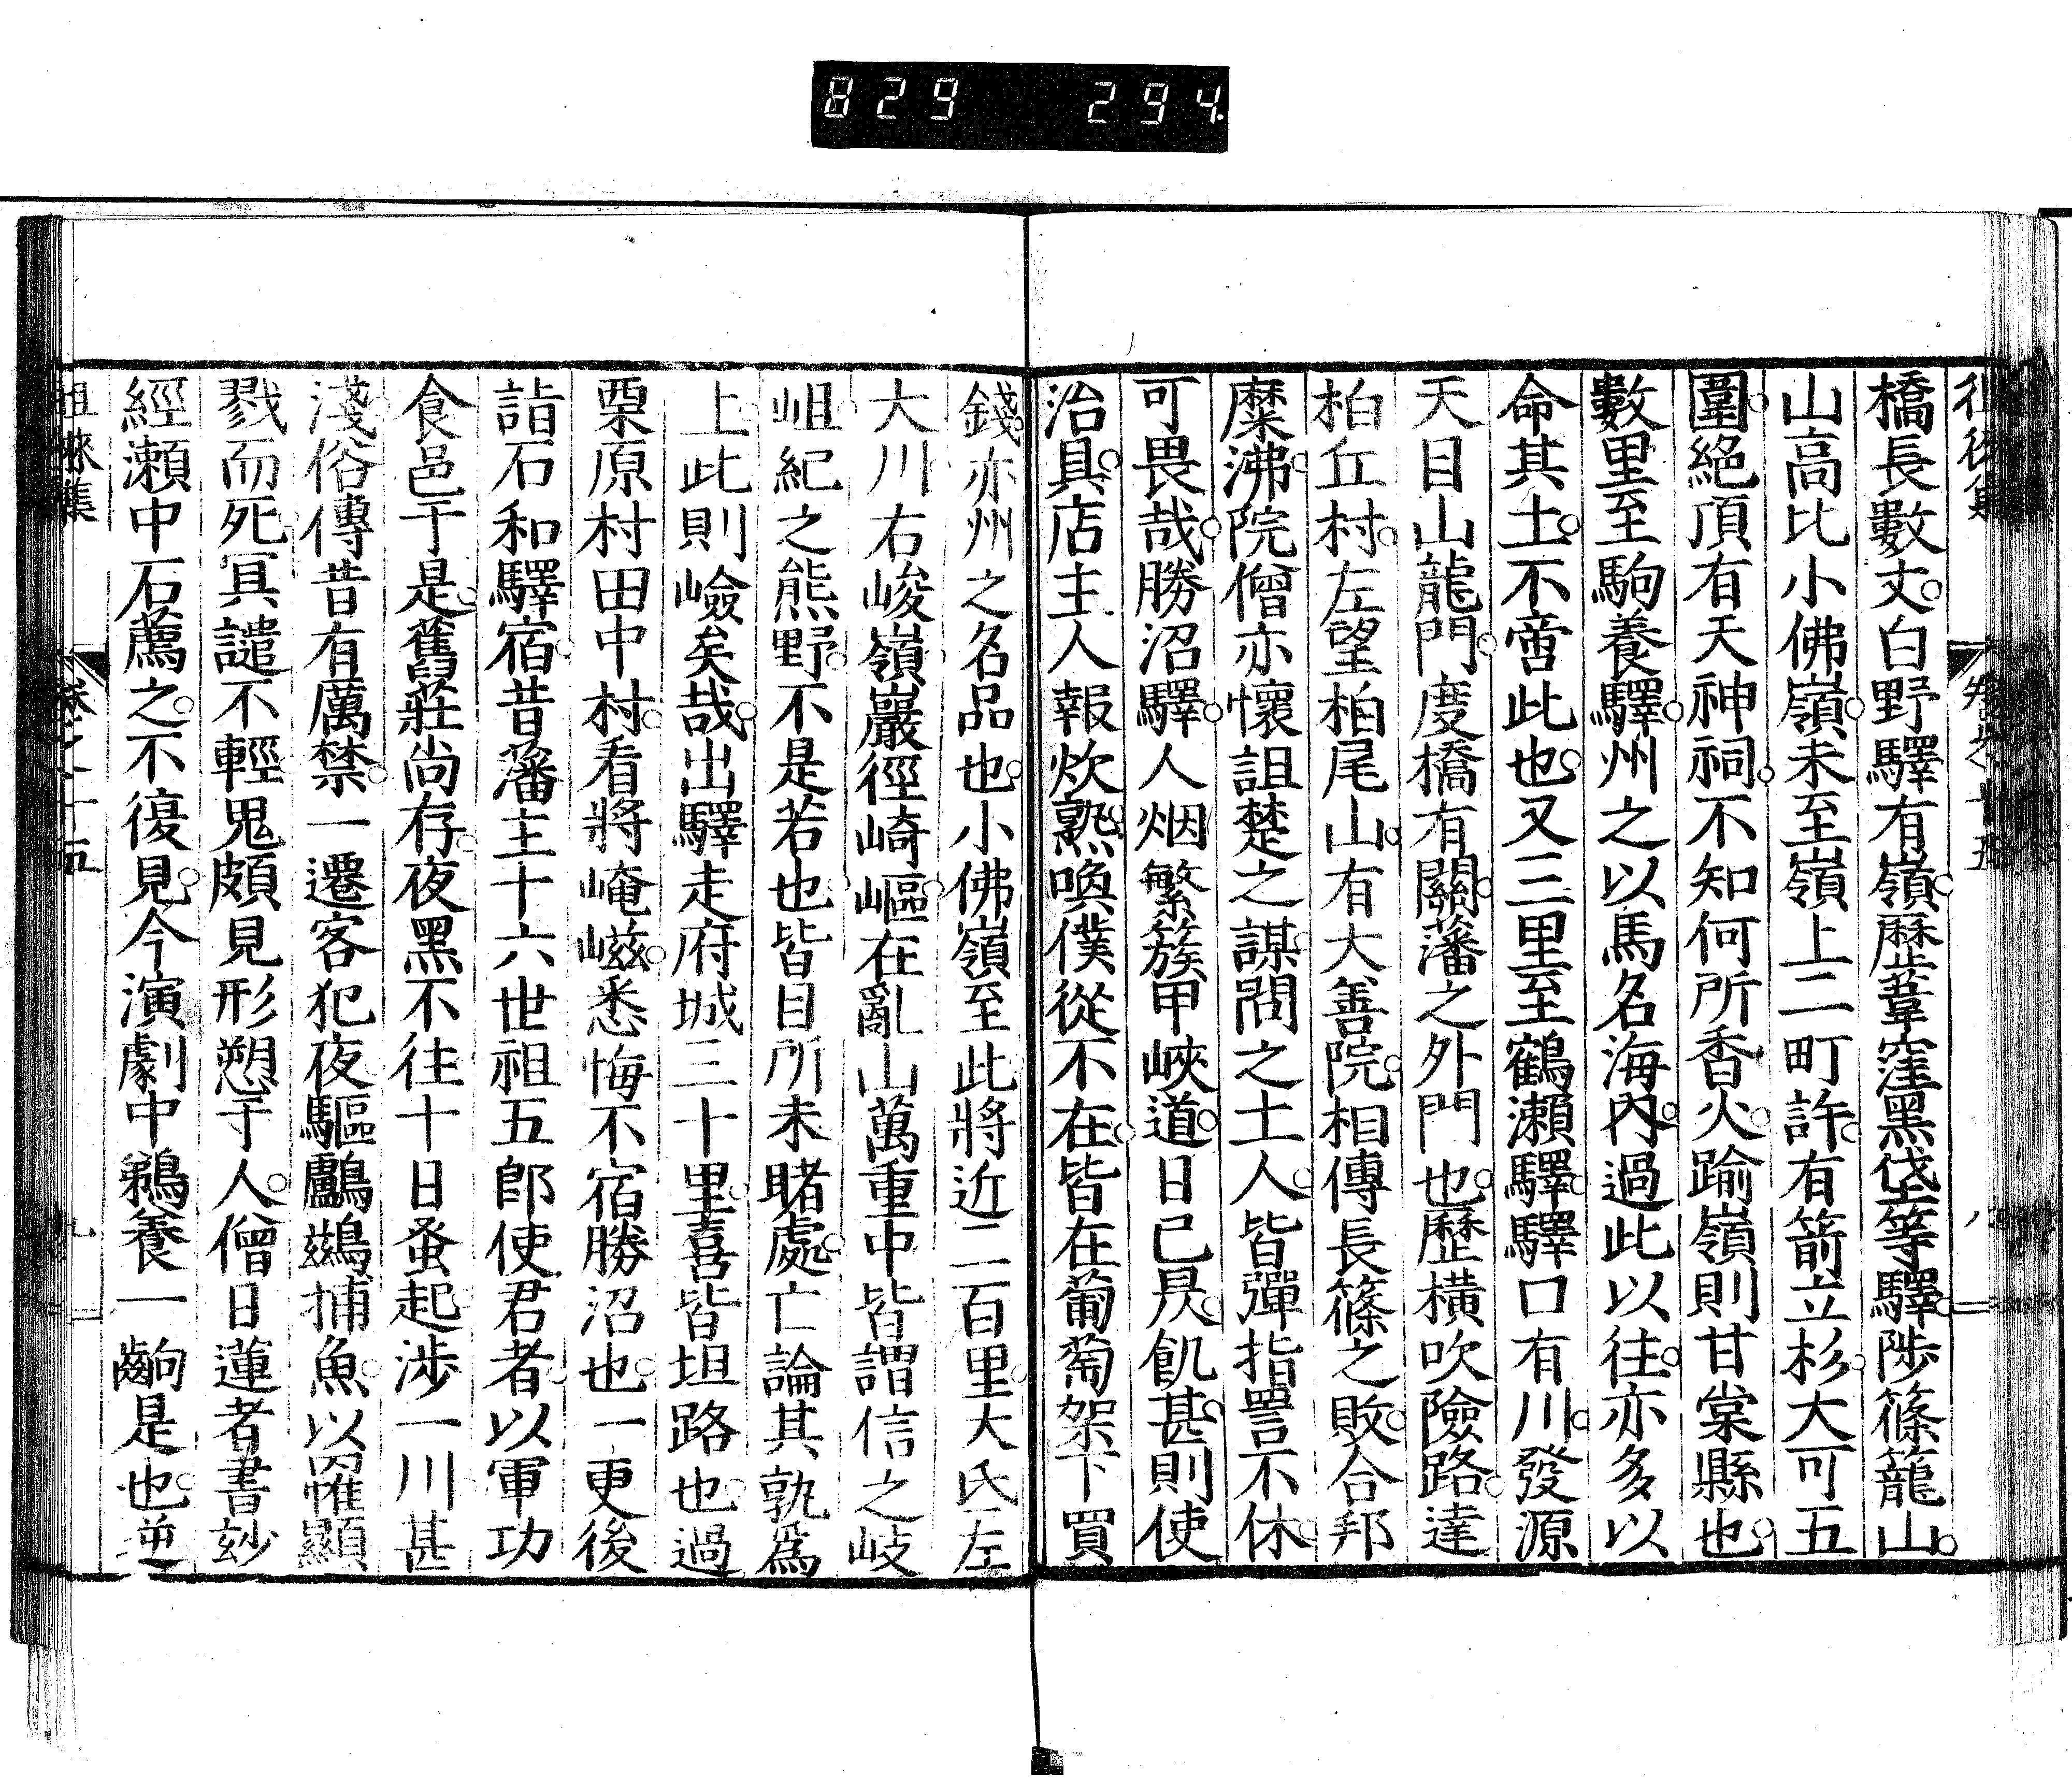 829 294.
橋長數丈。白野驛有嶺。歷葦窪黑垈等驛。陟篠籠山。
山高比小佛嶺。未至嶺上二町許。有箭立杉。大可五
圍。絕頂有天神祠。不知何所香火。踰嶺則甘棠縣也。
數里至駒養驛。州之以馬名海內。過此以往。亦多以
命其土。不啻此也。又三里至鶴瀨驛。驛口有川。發源
天目山龍門。度橋有關。藩之外門也。歷橫吹險路。達
柏丘村。左望柏尾山。有大善院。相傳長篠之敗。合邦
糜沸。院僧亦懷詛楚之謀。問之土人。皆彈指詈不休。
可畏哉。勝沼驛。人烟繁簇甲峽道。日已昃。飢甚。則使
治具。店主人報炊熟。喚僕從不在。皆在葡萄架下買
錢。亦州之名品也。小佛嶺至此將近二百里。大氐左
大川右峻嶺。巖徑崎嶇。在亂山萬重中。皆謂信之岐
岨。紀之熊野。不是若也。皆目所未睹處。亡論其孰爲
上。此則嶮矣哉。出驛走府城三十里。喜皆坦路也。過
栗原村田中村。看將崦嵫。悉悔不宿勝沼也。一更後
詣石和驛宿。昔藩主十六世祖五郎使君者。以軍功
食邑于是。舊莊尚存。夜黑不往。十日蚤起。涉一川甚
淺。俗傳昔有厲禁。一遷客犯夜驅鸕鷀捕魚。以罹顯
戮而死。冥譴不輕。鬼頗見形愬于人。僧日蓮者。書玅
經瀨中石薦之。不復見。今演劇中鵜養一齣是也。逆
徂徠集 卷之十五 九